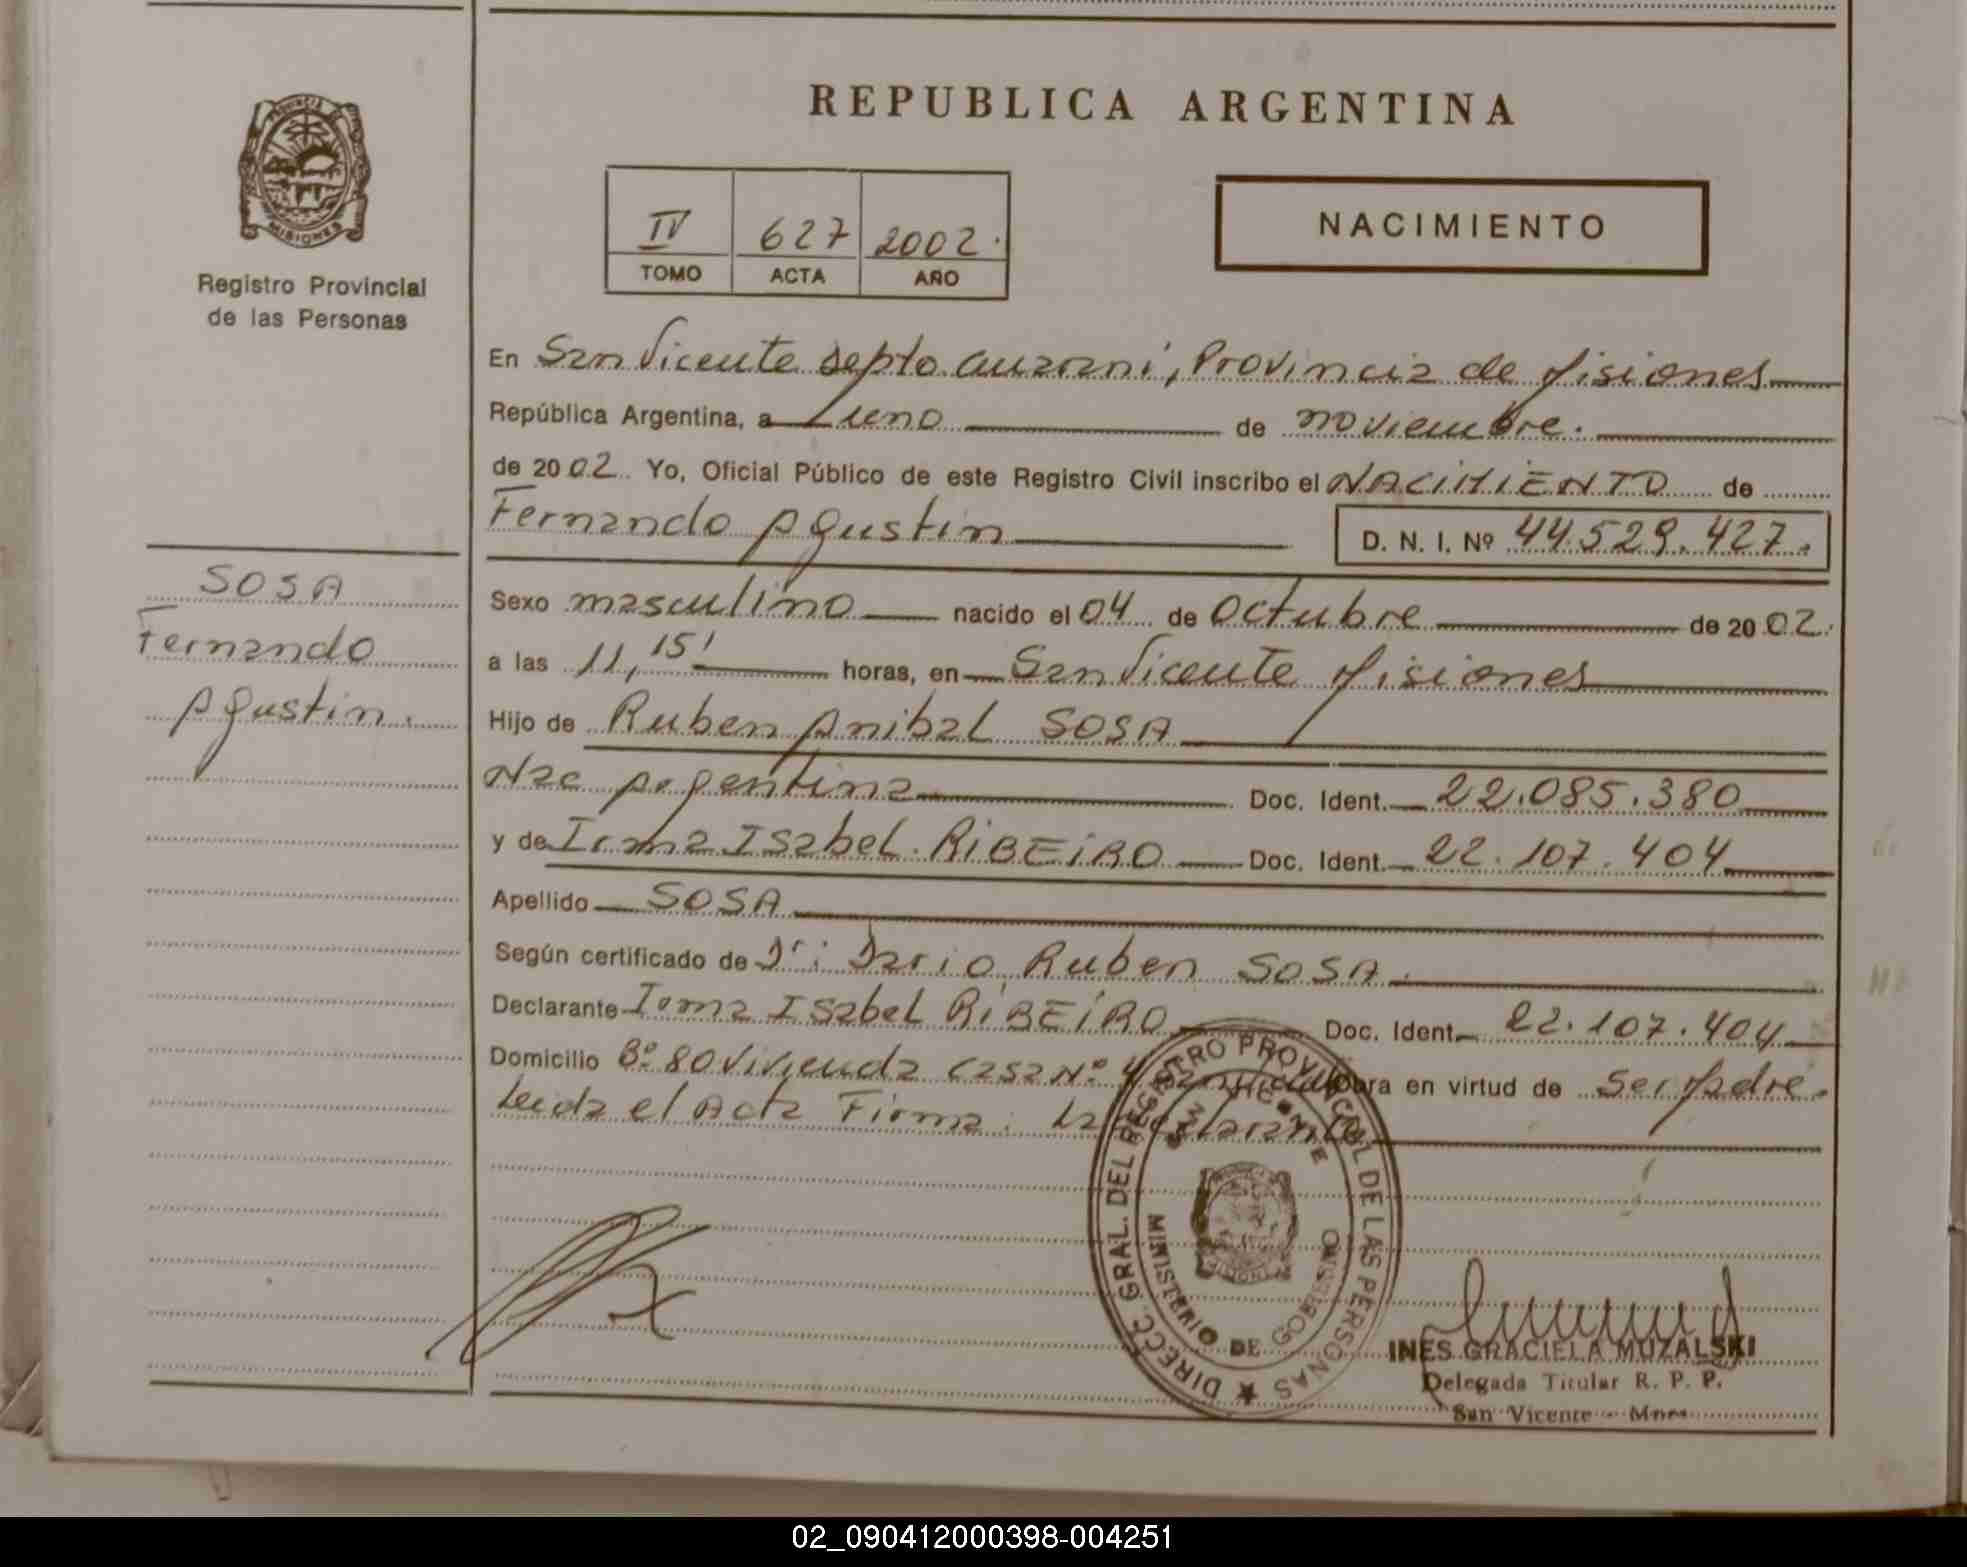 REPUBLICA ARGENTINA
PROVINCIA
MISIONES
Registro Provincial
de las Personas
IV 627 2002.
TOMO ACTA AÑO
NACIMIENTO
En San Vicente Depto Guarani, Provincia de Misiones
República Argentina, a uno de noviembre.
de 2002 Yo, Oficial Público de este Registro Civil inscribo el NACIMIENTO de
Fernando Agustin D. N. I. Nº 44.529.427.
SOSA
Fernando
Agustin.
Sexo masculino nacido el 04 de Octubre de 2002.
a las 11,15' horas, en San Vicente Misiones
Hijo de Ruben Anibal SOSA
Nac Argentina Doc. Ident. 22.085.380
y de Irma Isabel RIBEIRO Doc. Ident. 22.107.404
Apellido SOSA
Según certificado de Dr: Dario Ruben SOSA.
Declarante Irma Isabel RIBEIRO Doc. Ident. 22.107.404
Domicilio Bº 80 Vivienda Casa Nº 4 Obra en virtud de ser Madre.
Leida el Acta Firma. La declarante
DIRECC. GRAL. DEL REGISTRO PROVINCIAL DE LAS PERSONAS
SAN VICENTE
MINISTERIO DE GOBIERNO
INES GRACIELA MUZALSKI
Delegada Titular R. P. P.
San Vicente - Mnes
02_090412000398-004251